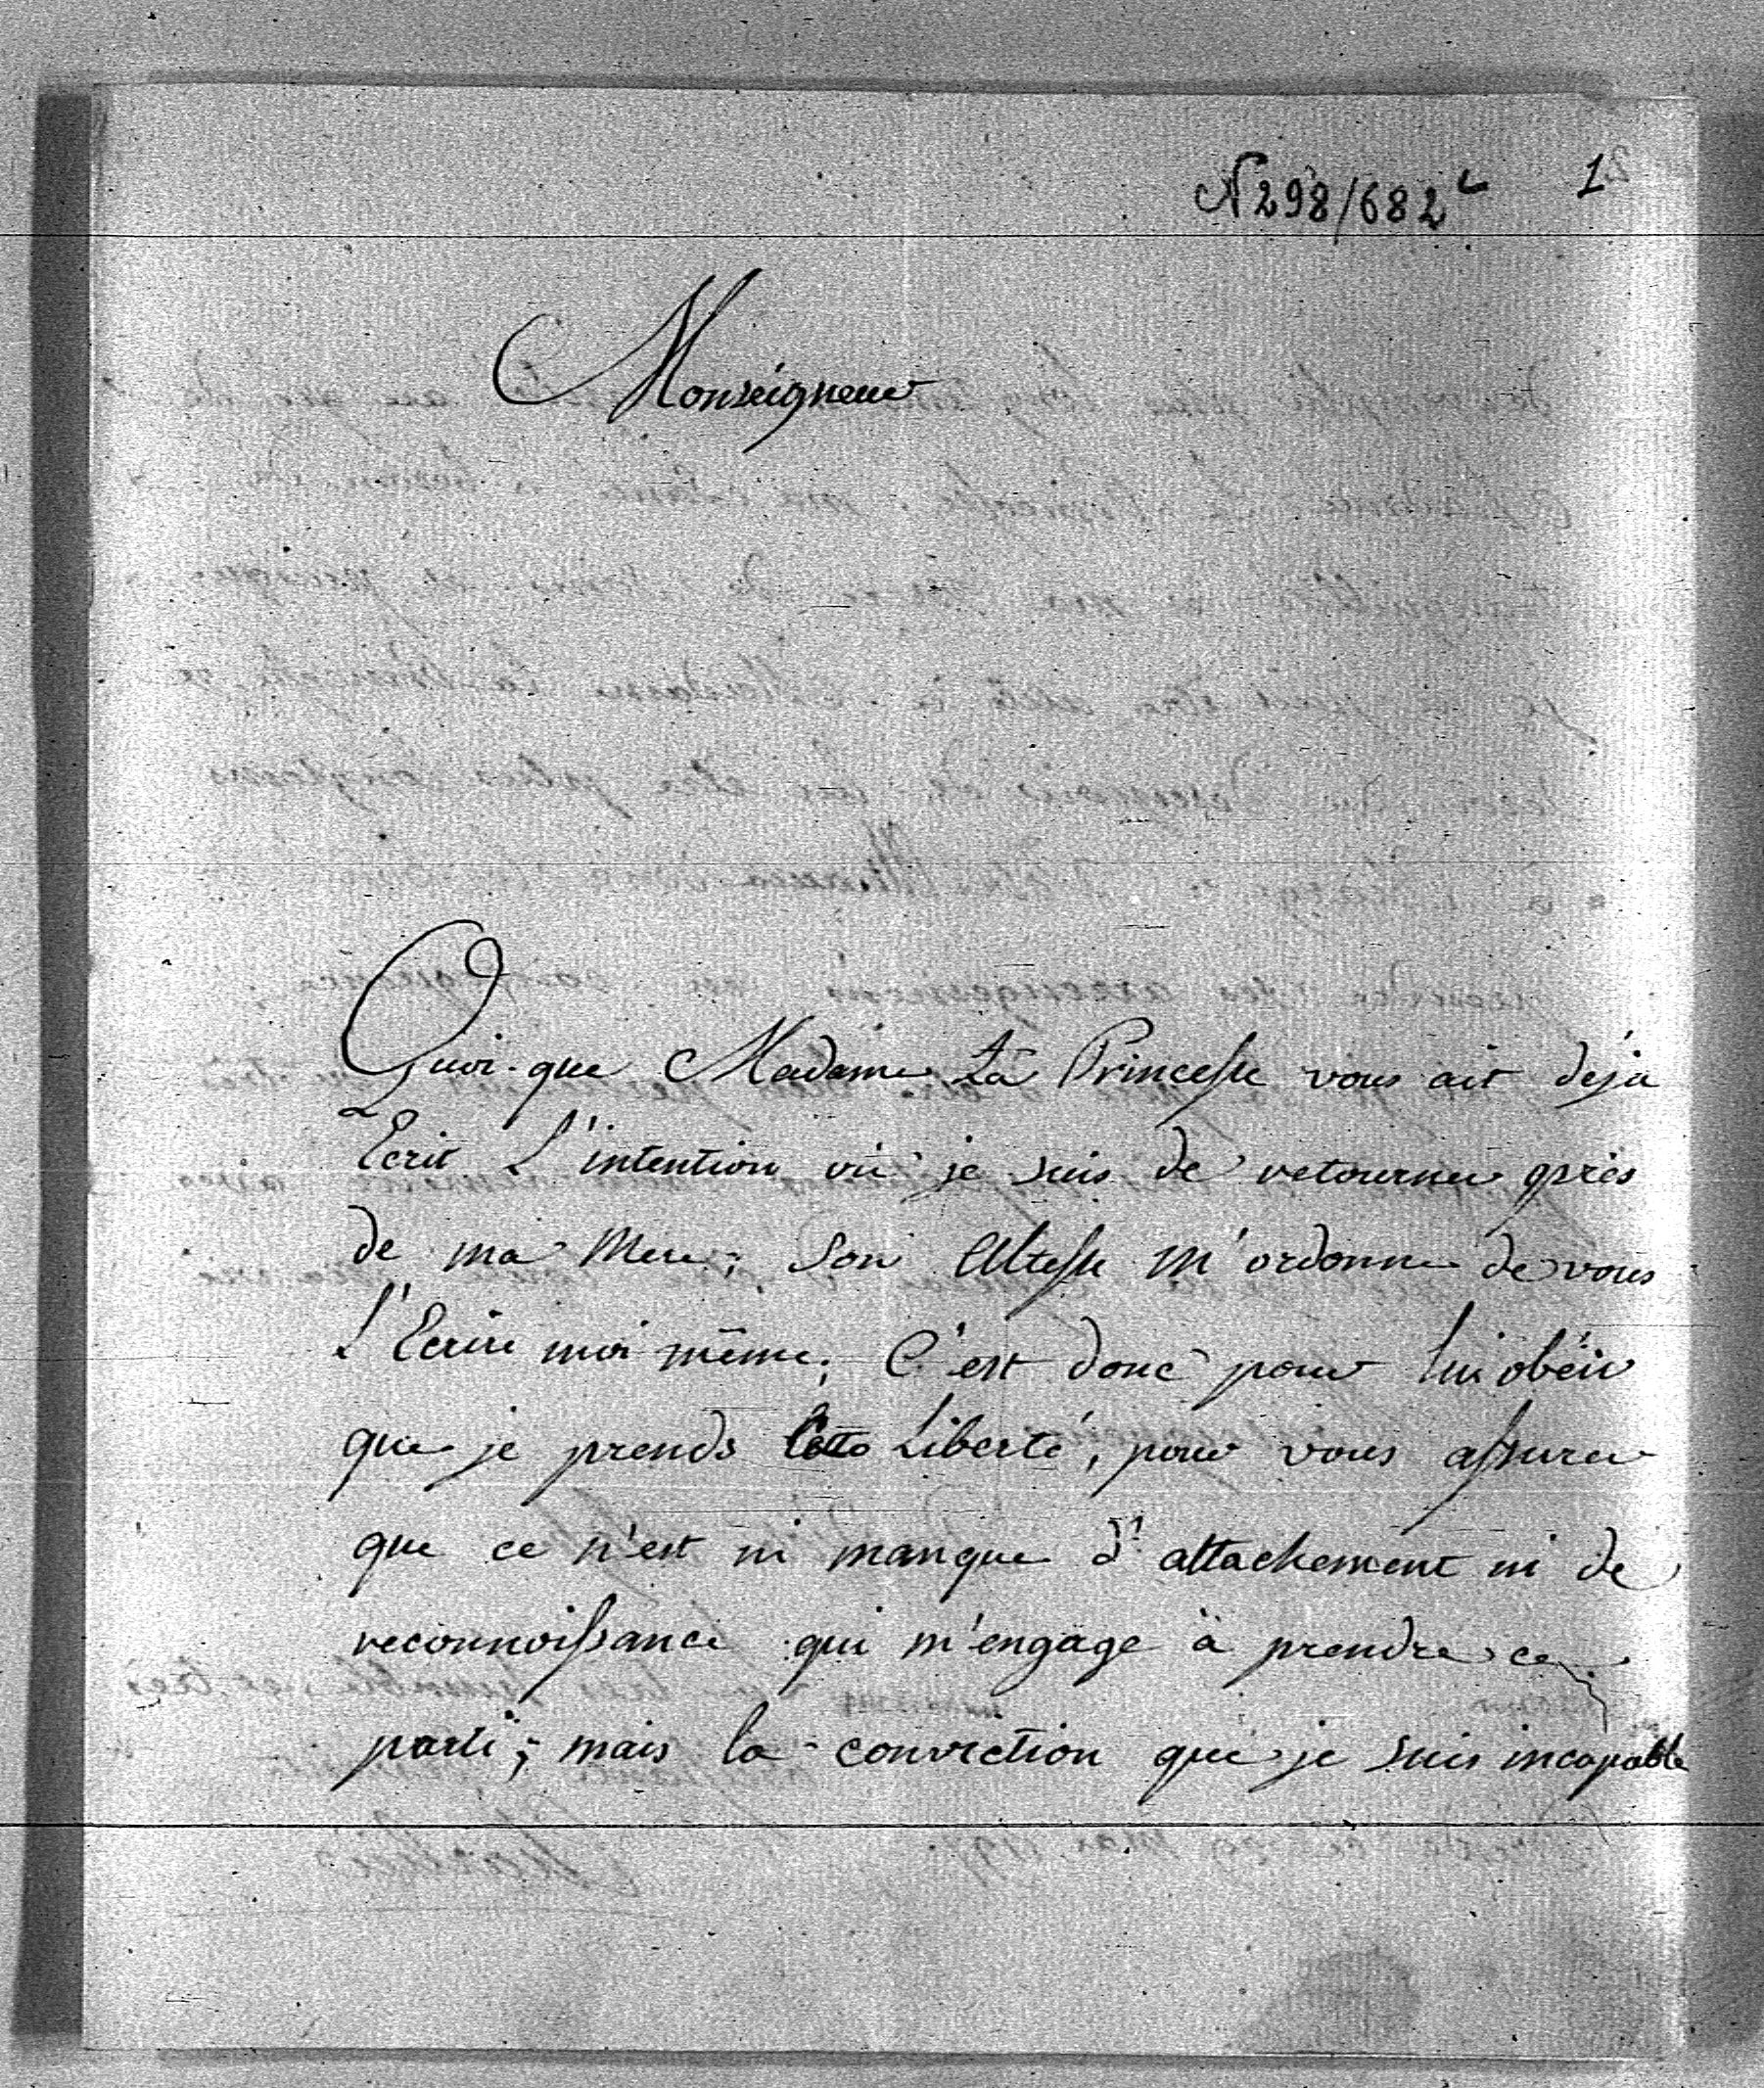 N 298/682 1
Monseigneur
Quoi-que Madame La Princesse vous ait déja
Ecrit L'intention où je suis de retourner près
de ma Mere; Son Altesse m'ordonne de vous
L'Ecrire moi même; C'est donc pour lui obéir
que je prends Cette Liberté, pour vous assurer
que ce n'est ni manque d'attachement ni de
reconnoissance qui m'engage à prendre ce
parti; mais la conviction que je suis incapable